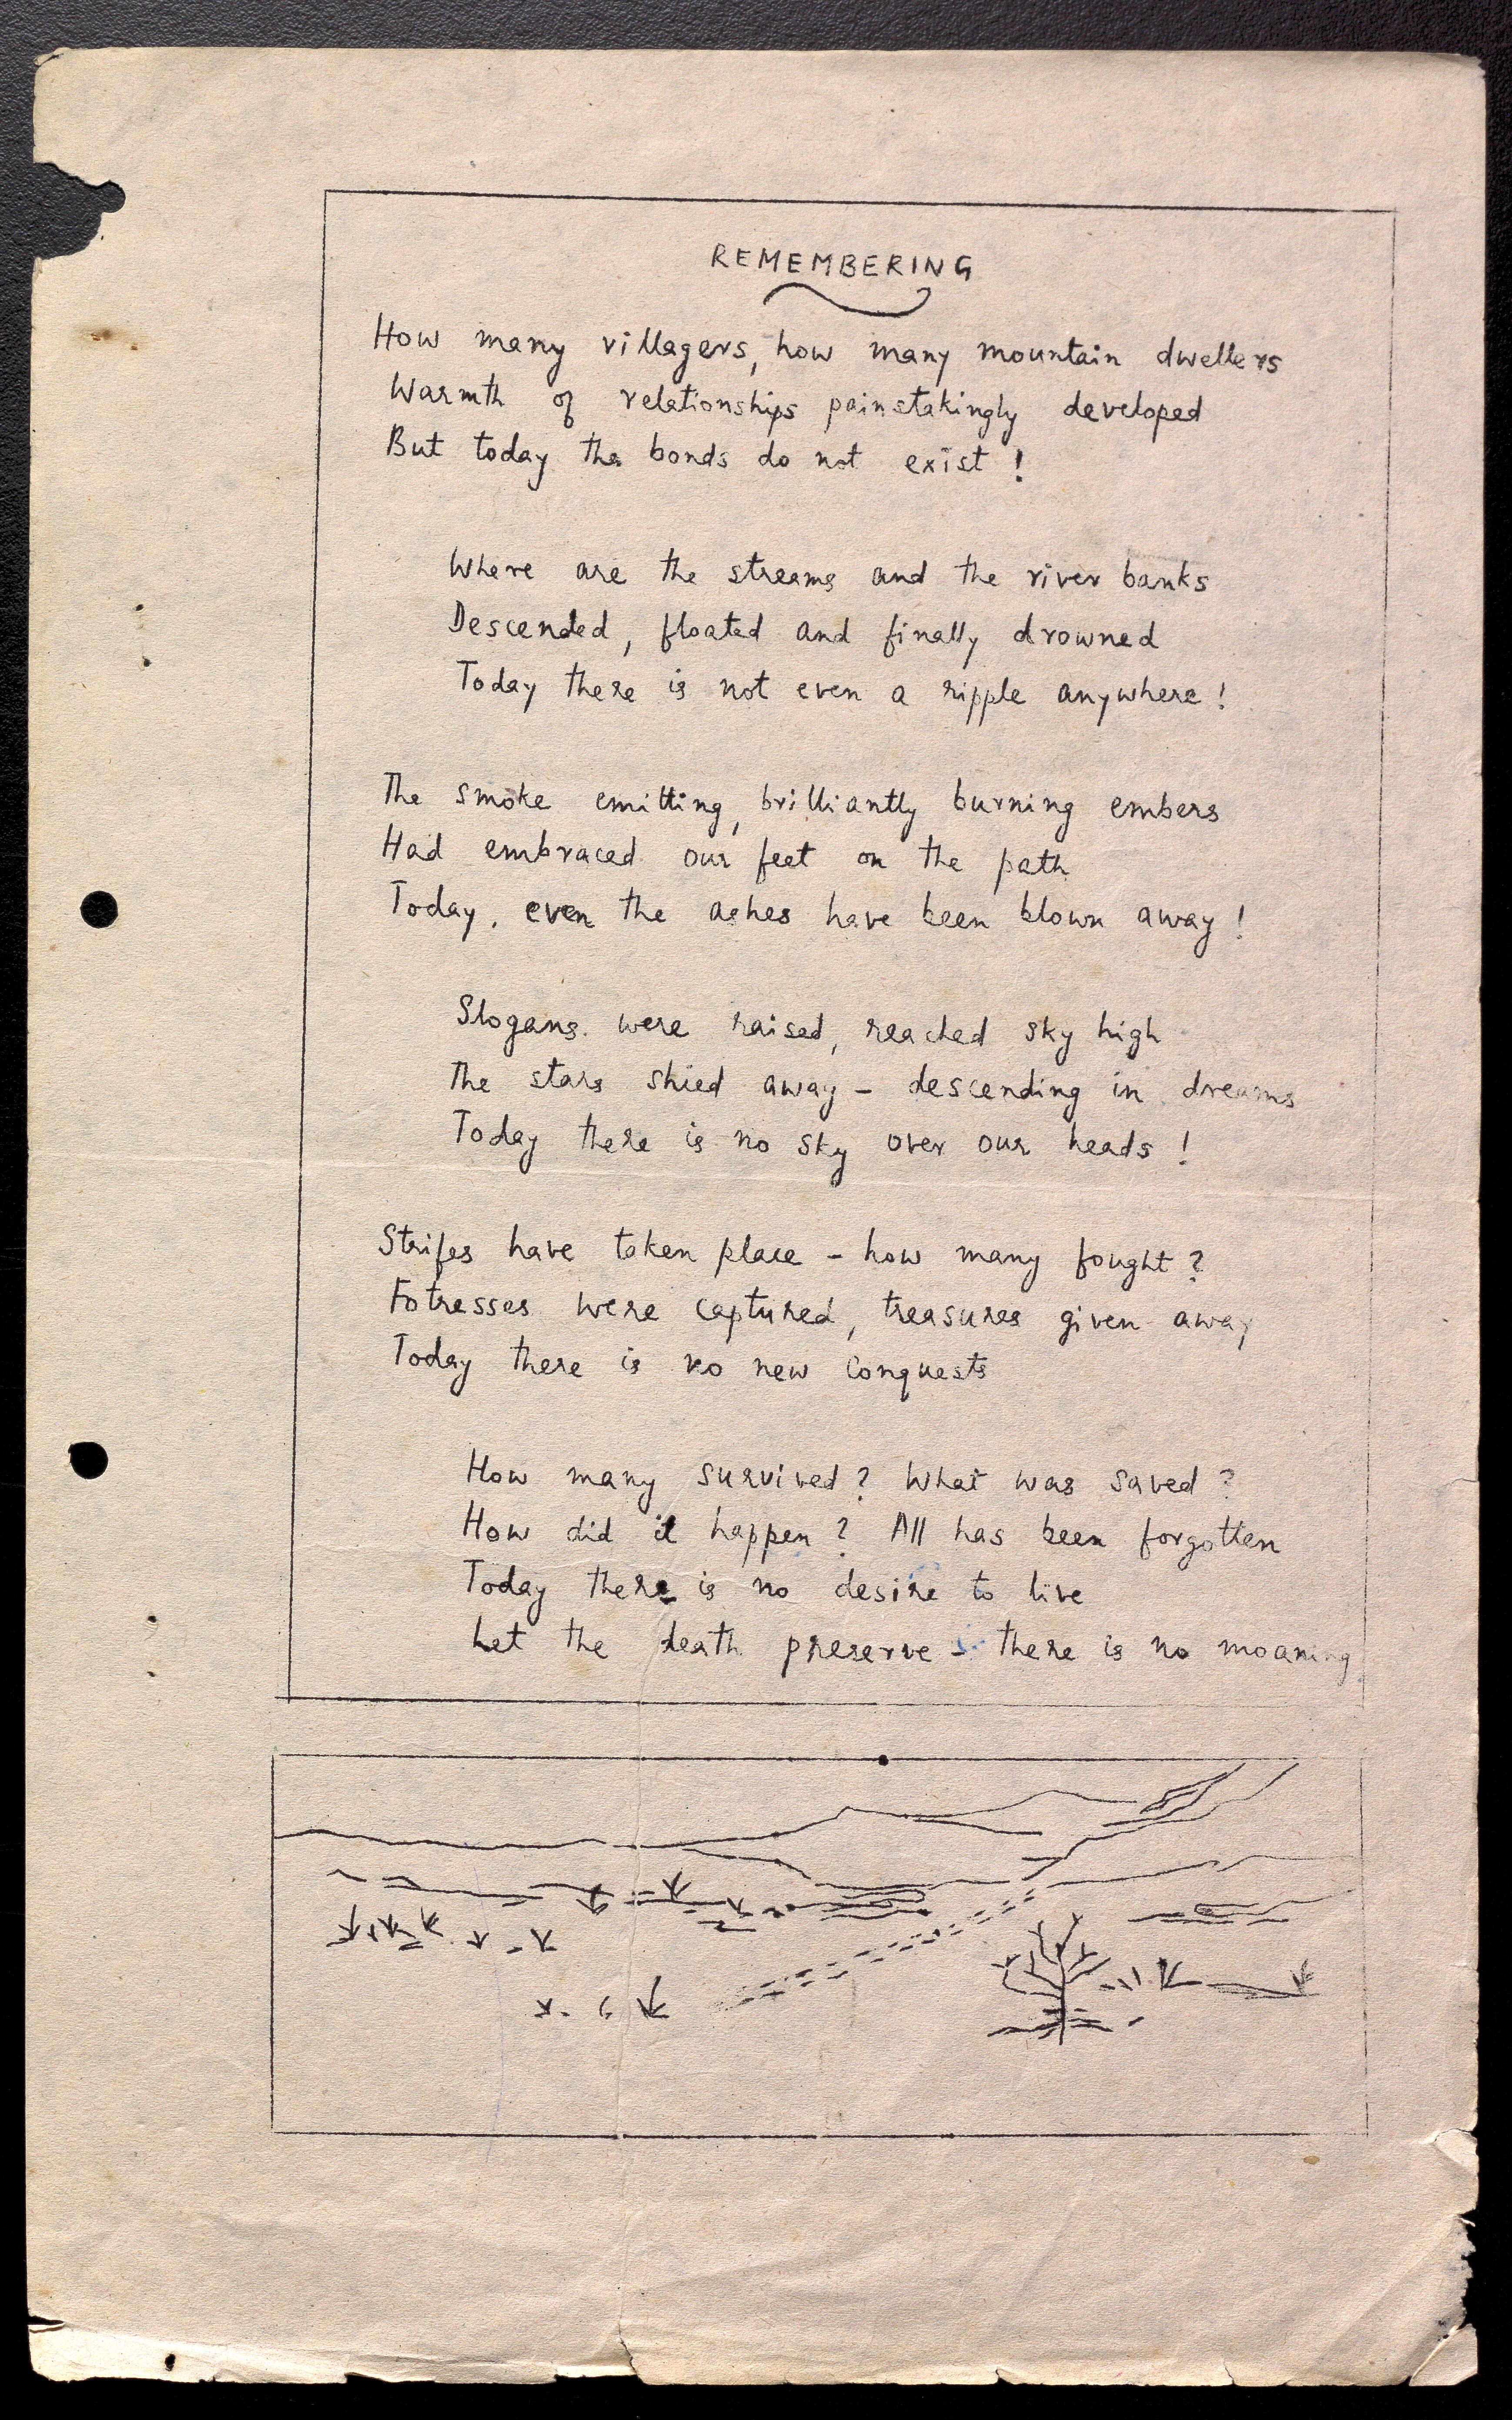 REMEMBERING
How many villagers, how many mountain dwellers
Warmth of relationships painstakingly developed
But today the bonds do not exist !
Where are the streams and the river banks
Descended, floated and finally drowned
Today there is not even a ripple anywhere !
The smoke emitting, brilliantly burning embers
Had embraced our feet on the path
Today, even the ashes have been blown away !
Slogans were raised, reached sky high
The stars shied away - descending in dreams
Today there is no sky over our heads !
Strifes have taken place - how many fought ?
Fotresses were captured, treasures given away
Today there is no new conquests
How many survived ? What was saved ?
How did it happen ? All has been forgotten
Today there is no desire to live
Let the death preserve - there is no moaning